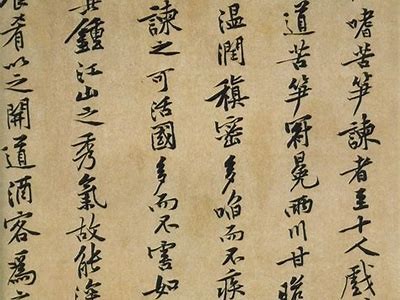 嗜苦笋諫者至十人戲
道苦笋冠冕兩川甘脆
溫潤稹密多啗而不疾
諫之可活國多而不害如
其鍾江山之秀氣故能深
食肴以之開道酒客爲之